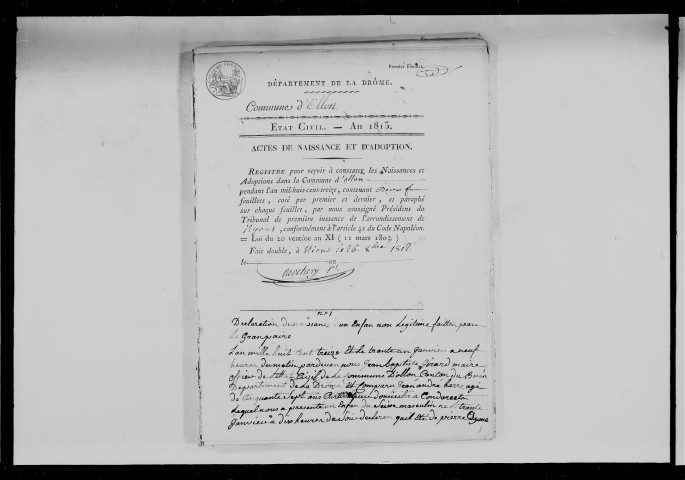 Premier Feuillet
DÉPARTEMENT DE LA DRÔME.
Commune d'Ollon
ETAT CIVIL. — AN 1813.
ACTES DE NAISSANCE ET D'ADOPTION.
REGISTRE pour servir à constater les Naissances et
Adoptions dans la Commune d'ollon
pendant l'an mil-huit-cent-treize, contenant
feuillets, coté par premier et dernier, et paraphé
sur chaque feuillet, par nous soussigné Président du
Tribunal de première instance de l'arrondissement de
Nyons, conformément à l'article 41 du Code Napoléon.
= Loi du 20 ventôse an XI (11 mars 1803.)
Fait double, à Nions le 26. 8bre 1812.
le an
N.° 1
Declaration de naissance un Enfan non Legitime faitte par
le Granpaire
Lan mille huit Cent treize Et le trante un janvier a neuf
heures du matin pardevan nous jean baptiste Girard maire
officier de Letat Civil de la Commune Dollon Canton du Buis
Departement de la Drome Est Comparu jean andre barre agé
de Cinquante Sept ans domicilié a Condorcet
Lequel nous a presenté un Enfan du Sexe masculin né le trente
janvier a dix heures du Soir declaran quel de pierre